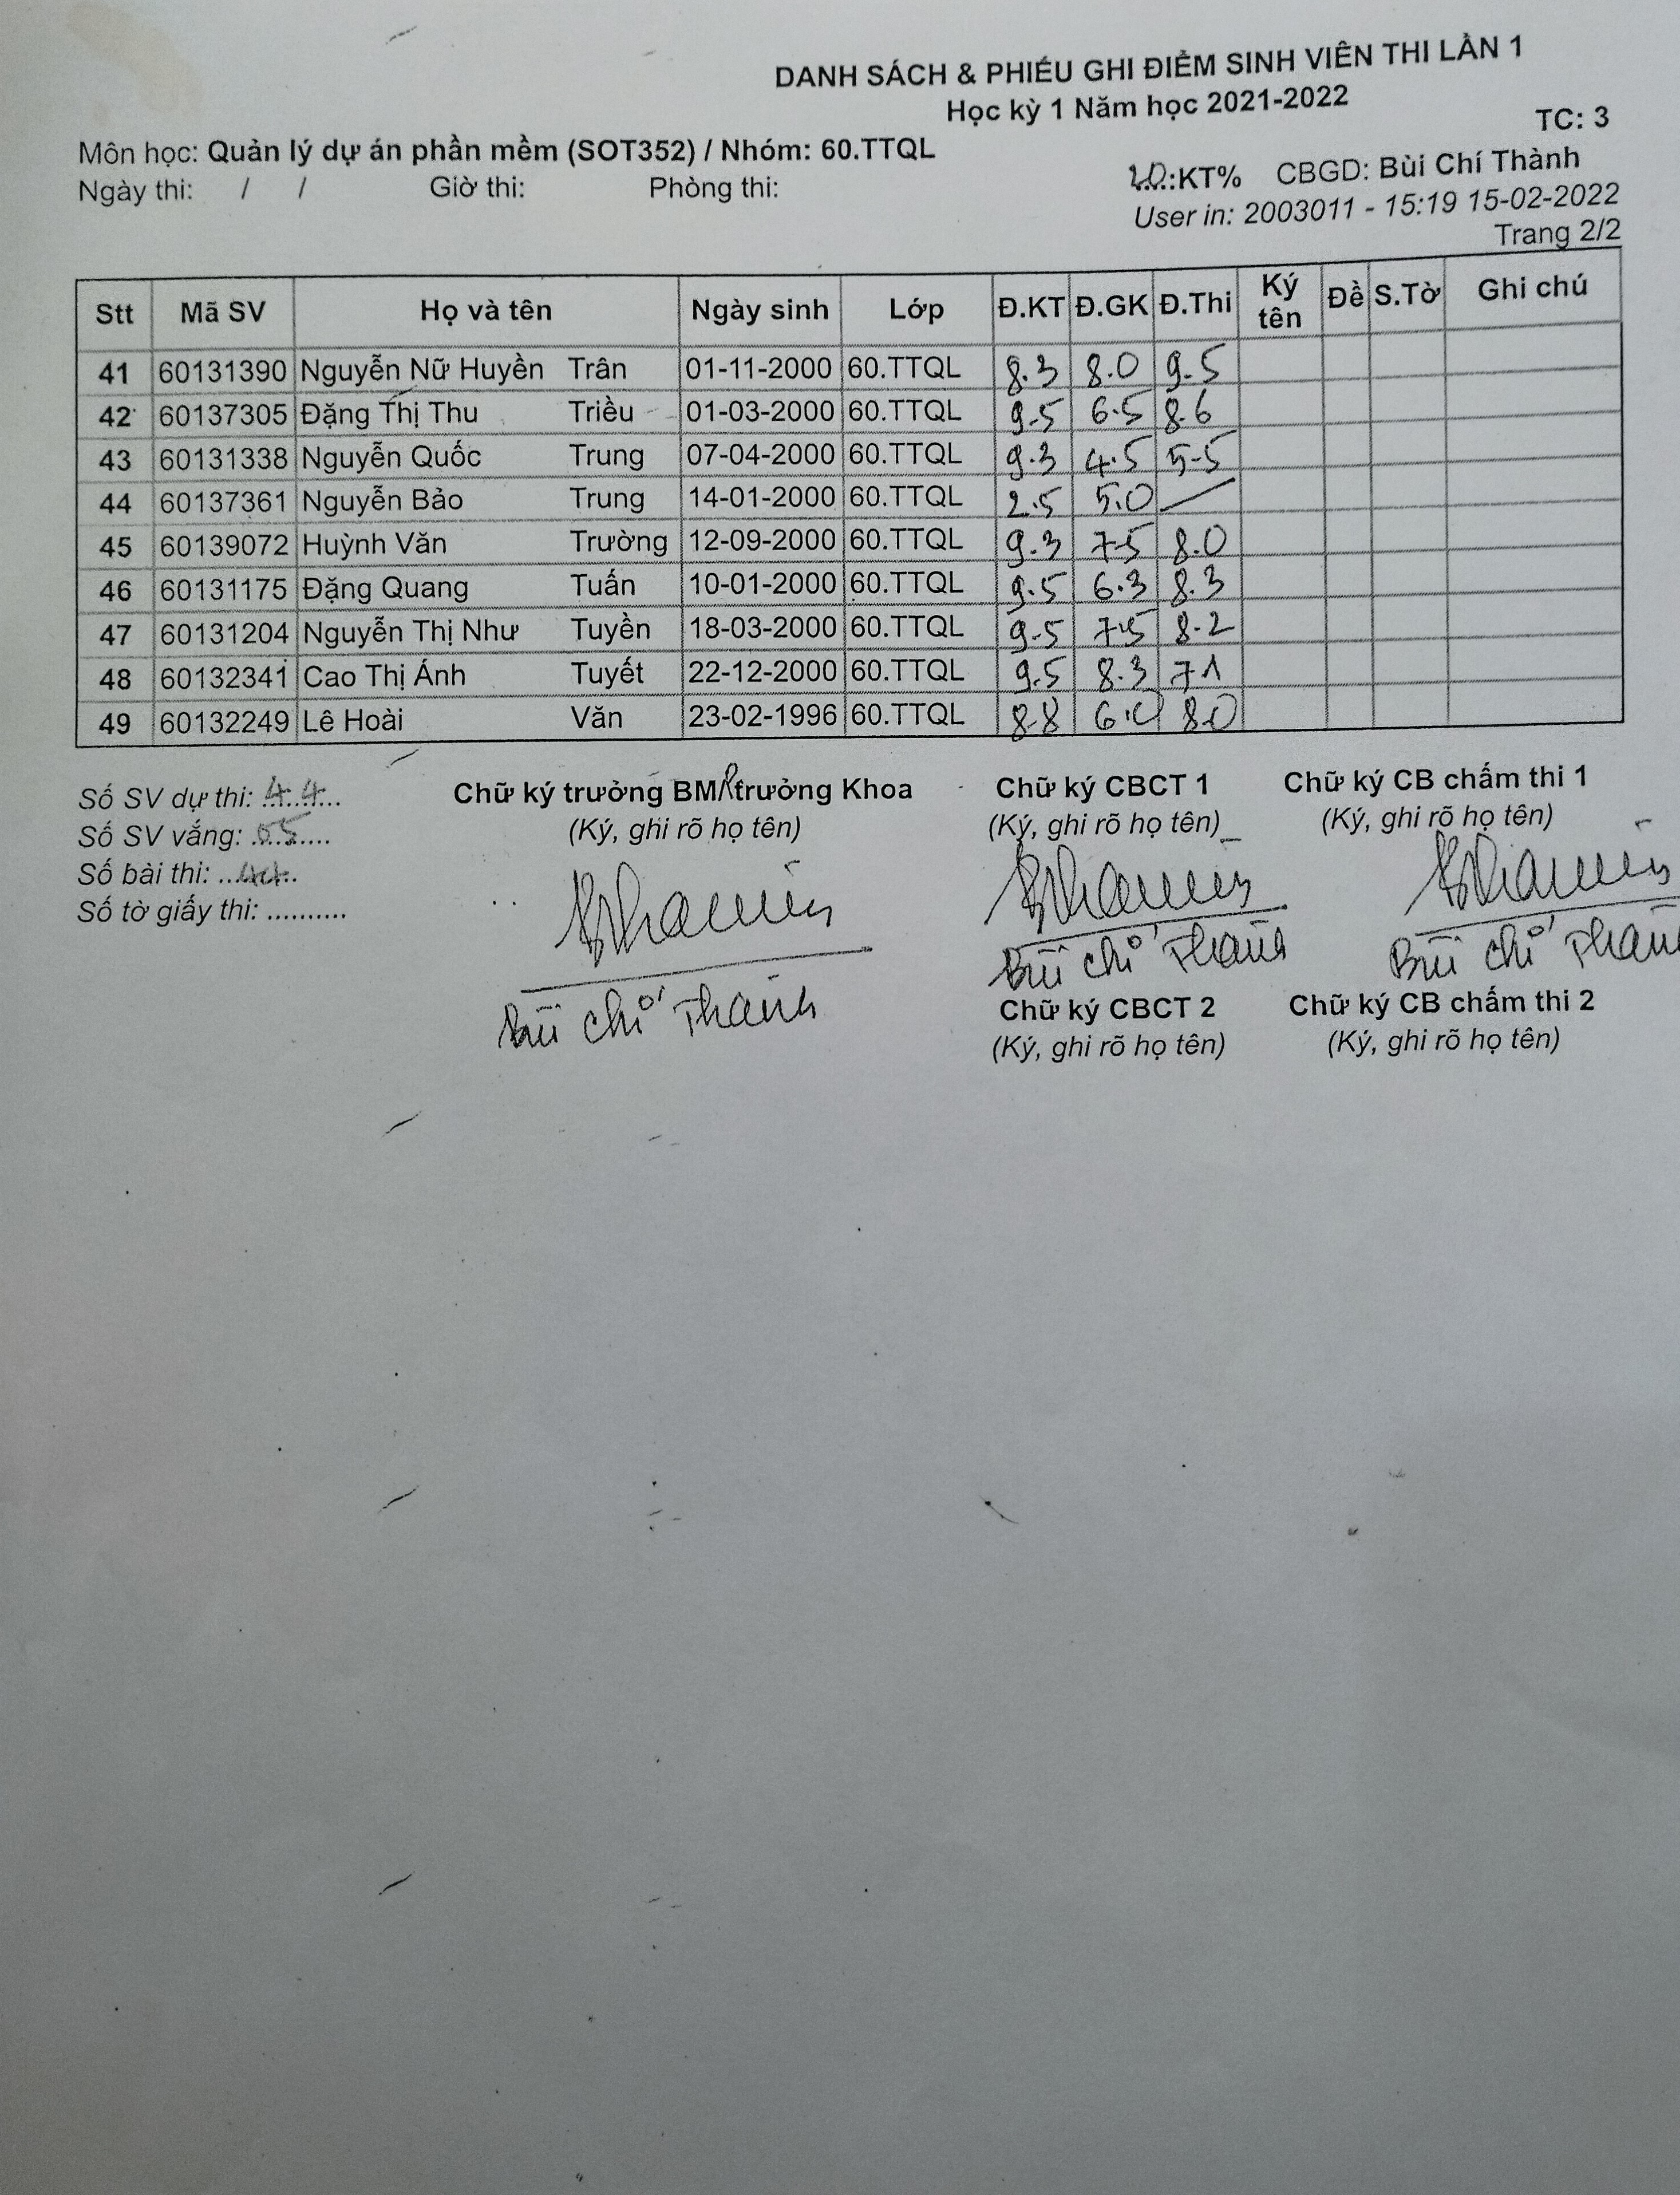 DANH SÁCH & PHIẾU GHI ĐIỂM SINH VIÊN THI LẦN 1
Học kỳ 1 Năm học 2021-2022
TC: 3
Môn học: Quản lý dự án phần mềm (SOT352) / Nhóm: 60.TTQL
Ngày thi: / / Giờ thi: Phòng thi:
:KT% CBGD: Bùi Chí Thành
User in: 2003011 - 15:19 15-02-2022
Trang 2/2
Stt Mã SV Họ và tên Ngày sinh Lớp Đ.KT Đ.GK Đ.Thi Ký tên Đề S.Tờ Ghi chú
41 60131390 Nguyễn Nữ Huyền Trân 01-11-2000 60.TTQL 8.3 8.0 9.5
42 60137305 Đặng Thị Thu Triều 01-03-2000 60.TTQL 9.5 6.5 8.6
43 60131338 Nguyễn Quốc Trung 07-04-2000 60.TTQL 9.3 4.5 5.5
44 60137361 Nguyễn Bảo Trung 14-01-2000 60.TTQL 2.5 5.0 —
45 60139072 Huỳnh Văn Trường 12-09-2000 60.TTQL 9.3 7.5 8.0
46 60131175 Đặng Quang Tuấn 10-01-2000 60.TTQL 9.5 6.3 8.3
47 60131204 Nguyễn Thị Như Tuyền 18-03-2000 60.TTQL 9.5 7.5 8.2
48 60132341 Cao Thị Ánh Tuyết 22-12-2000 60.TTQL 9.5 8.3 7.1
49 60132249 Lê Hoài Văn 23-02-1996 60.TTQL 8.8 6.0 8.0
Số SV dự thi: 44
Số SV vắng: 05
Số bài thi: 44
Số tờ giấy thi: ..........
Chữ ký trưởng BM/trưởng Khoa
(Ký, ghi rõ họ tên)
Bùi Chí Thành
Chữ ký CBCT 1
(Ký, ghi rõ họ tên)
Bùi Chí Thành
Chữ ký CB chấm thi 1
(Ký, ghi rõ họ tên)
Bùi Chí Thành
Chữ ký CBCT 2
(Ký, ghi rõ họ tên)
Chữ ký CB chấm thi 2
(Ký, ghi rõ họ tên)